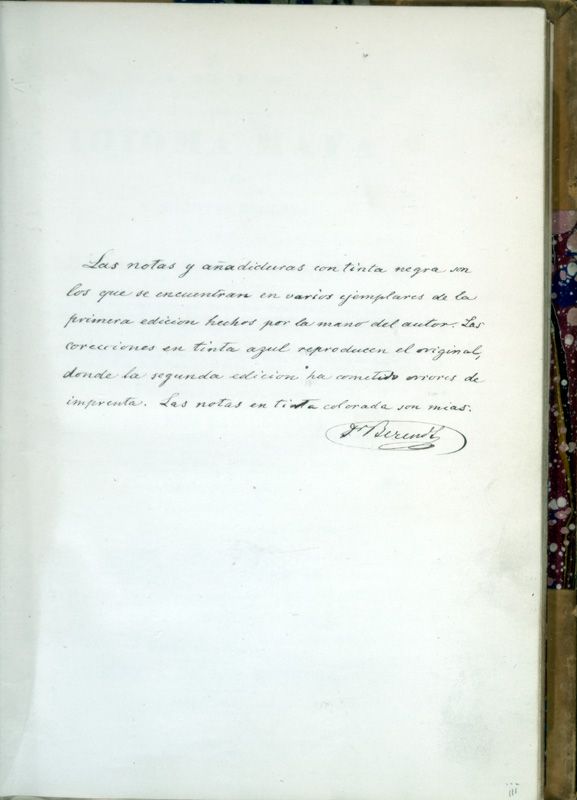 Las notas y añadiduras con tinta negra son
los que se encuentran en varios ejemplares de la
primera edicion hechos por la mano del autor. Las
corecciones en tinta azul reproducen el original,
donde la segunda edicion ha cometido errores de
imprenta. Las notas en tinta colorada son mias.
Dr Berendt
iii